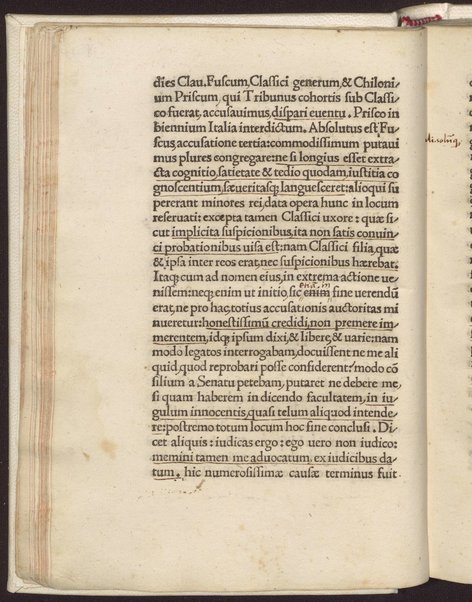 dies Clau. Fuscum, Classici generum, & Chiloni/
um Priscum, qui Tribunus cohortis sub Classi/
co fuerat, accusauimus, dispari euentu. Prisco in
biennium Italia interdictum. Absolutus est Fu/
scus, accusatione tertia: commodissimum putaui
mus plures congregare: ne si longius esset extra/
cta cognitio, satietate & tedio quodam, iustitia co
gnoscentium, sæueritasq; languesceret: alioqui su
pererant minores rei, data opera hunc in locum
reseruati: excepta tamen Classici uxore: quæ si/
cut implicita suspicionibus, ita non satis conuin/
ci probationibus uisa est: nam Classici filia, quæ
& ipsa inter reos erat, nec suspicionibus hærebat.
Itaq; cum ad nomen eius, in extrema actione ue/
nissem: neq; enim ut initio, sic enim fine uerendũ
erat, ne pro hac, totius accusationis auctoritas mi
nueretur: honestissimũ credidi, non premere im/
merentem, idq; ipsum dixi, & libere, & uarie: nam
modo legatos interrogabam, docuissent ne me ali
quid, quod reprobari posse considerent: modo cõ
silium a Senatu petebam, putaret ne debere me,
si quam haberem in dicendo facultatem, in iu/
gulum innocentis, quasi telum aliquod intende/
re: postremo totum locum hoc fine conclusi. Di/
cet aliquis: iudicas ergo: ego uero non iudico:
memini tamen me aduocatum, ex iudicibus da/
tum. hic numerosissimæ causæ terminus fuit